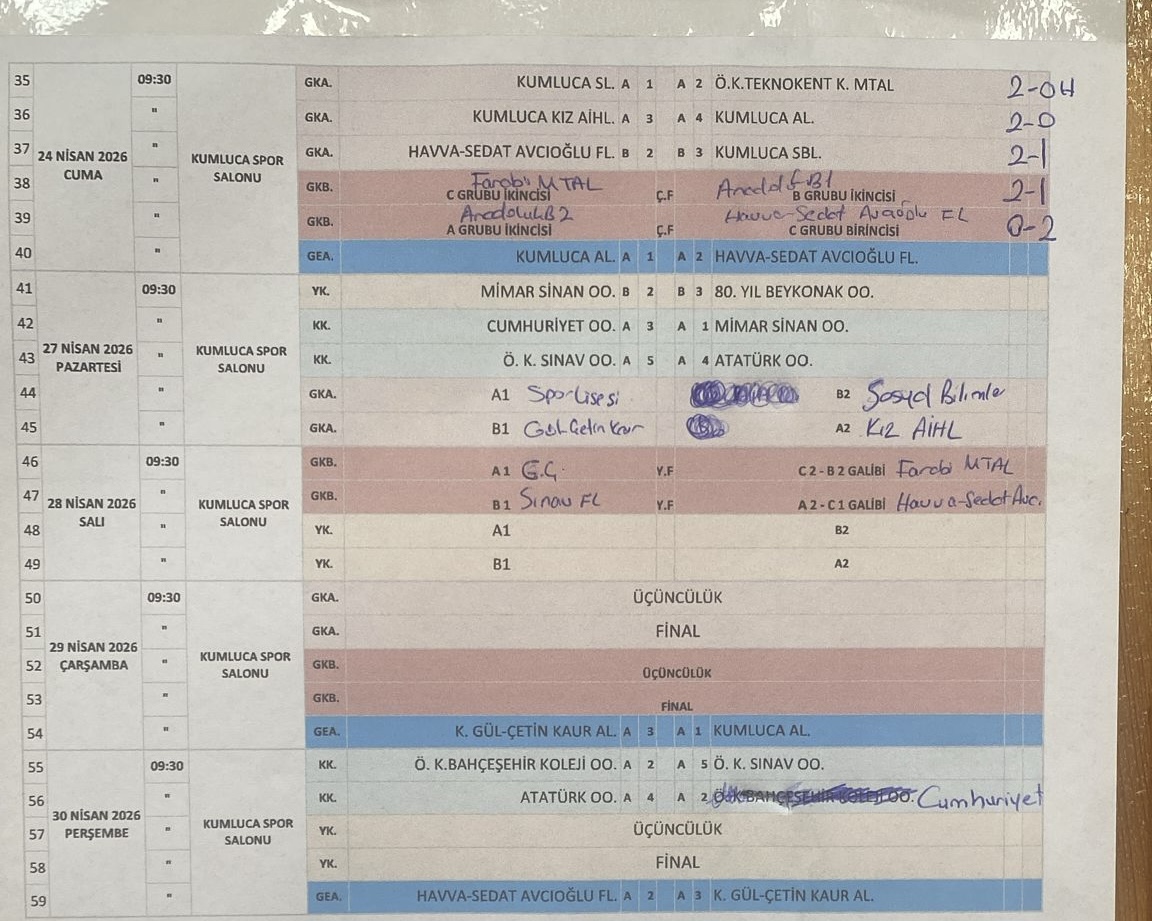 35 09:30 GKA. KUMLUCA SL. A 1 A 2 Ö.K.TEKNOKENT K. MTAL 2-0H
36 " GKA. KUMLUCA KIZ AİHL. A 3 A 4 KUMLUCA AL. 2-0
37 " GKA. HAVVA-SEDAT AVCIOĞLU FL. B 2 B 3 KUMLUCA SBL. 2-1
24 NİSAN 2026 CUMA
KUMLUCA SPOR SALONU
38 " GKB. Farabi MTAL C GRUBU İKİNCİSİ Ç.F B GRUBU İKİNCİSİ 2-1
39 " GKB. A GRUBU İKİNCİSİ Ç.F Havva-Sedat Avcıoğlu FL C GRUBU BİRİNCİSİ 0-2
40 " GEA. KUMLUCA AL. A 1 A 2 HAVVA-SEDAT AVCIOĞLU FL.
41 09:30 YK. MİMAR SİNAN OO. B 2 B 3 80. YIL BEYKONAK OO.
42 " KK. CUMHURİYET OO. A 3 A 1 MİMAR SİNAN OO.
27 NİSAN 2026 PAZARTESİ
KUMLUCA SPOR SALONU
43 " KK. Ö. K. SINAV OO. A 5 A 4 ATATÜRK OO.
44 " GKA. A1 Spor Lisesi B2 Sosyal Bilimler
45 " GKA. B1 Gül Çetin Kaur A2 Kız AİHL
46 09:30 GKB. A1 G.Ç. Y.F C2-B2 GALİBİ Farabi MTAL
47 " GKB. B1 Sınav FL Y.F A2-C1 GALİBİ Havva-Sedat Avc.
28 NİSAN 2026 SALI
KUMLUCA SPOR SALONU
48 " YK. A1 B2
49 " YK. B1 A2
50 09:30 GKA. ÜÇÜNCÜLÜK
51 " GKA. FİNAL
29 NİSAN 2026 ÇARŞAMBA
KUMLUCA SPOR SALONU
52 " GKB. ÜÇÜNCÜLÜK
53 " GKB. FİNAL
54 " GEA. K. GÜL-ÇETİN KAUR AL. A 3 A 1 KUMLUCA AL.
55 09:30 KK. Ö. K.BAHÇEŞEHİR KOLEJİ OO. A 2 A 5 Ö. K. SINAV OO.
56 " KK. ATATÜRK OO. A 4 A 2 Ö.K.BAHÇEŞEHİR KOLEJİ OO. Cumhuriyet
30 NİSAN 2026 PERŞEMBE
KUMLUCA SPOR SALONU
57 " YK. ÜÇÜNCÜLÜK
58 " YK. FİNAL
59 " GEA. HAVVA-SEDAT AVCIOĞLU FL. A 2 A 3 K. GÜL-ÇETİN KAUR AL.